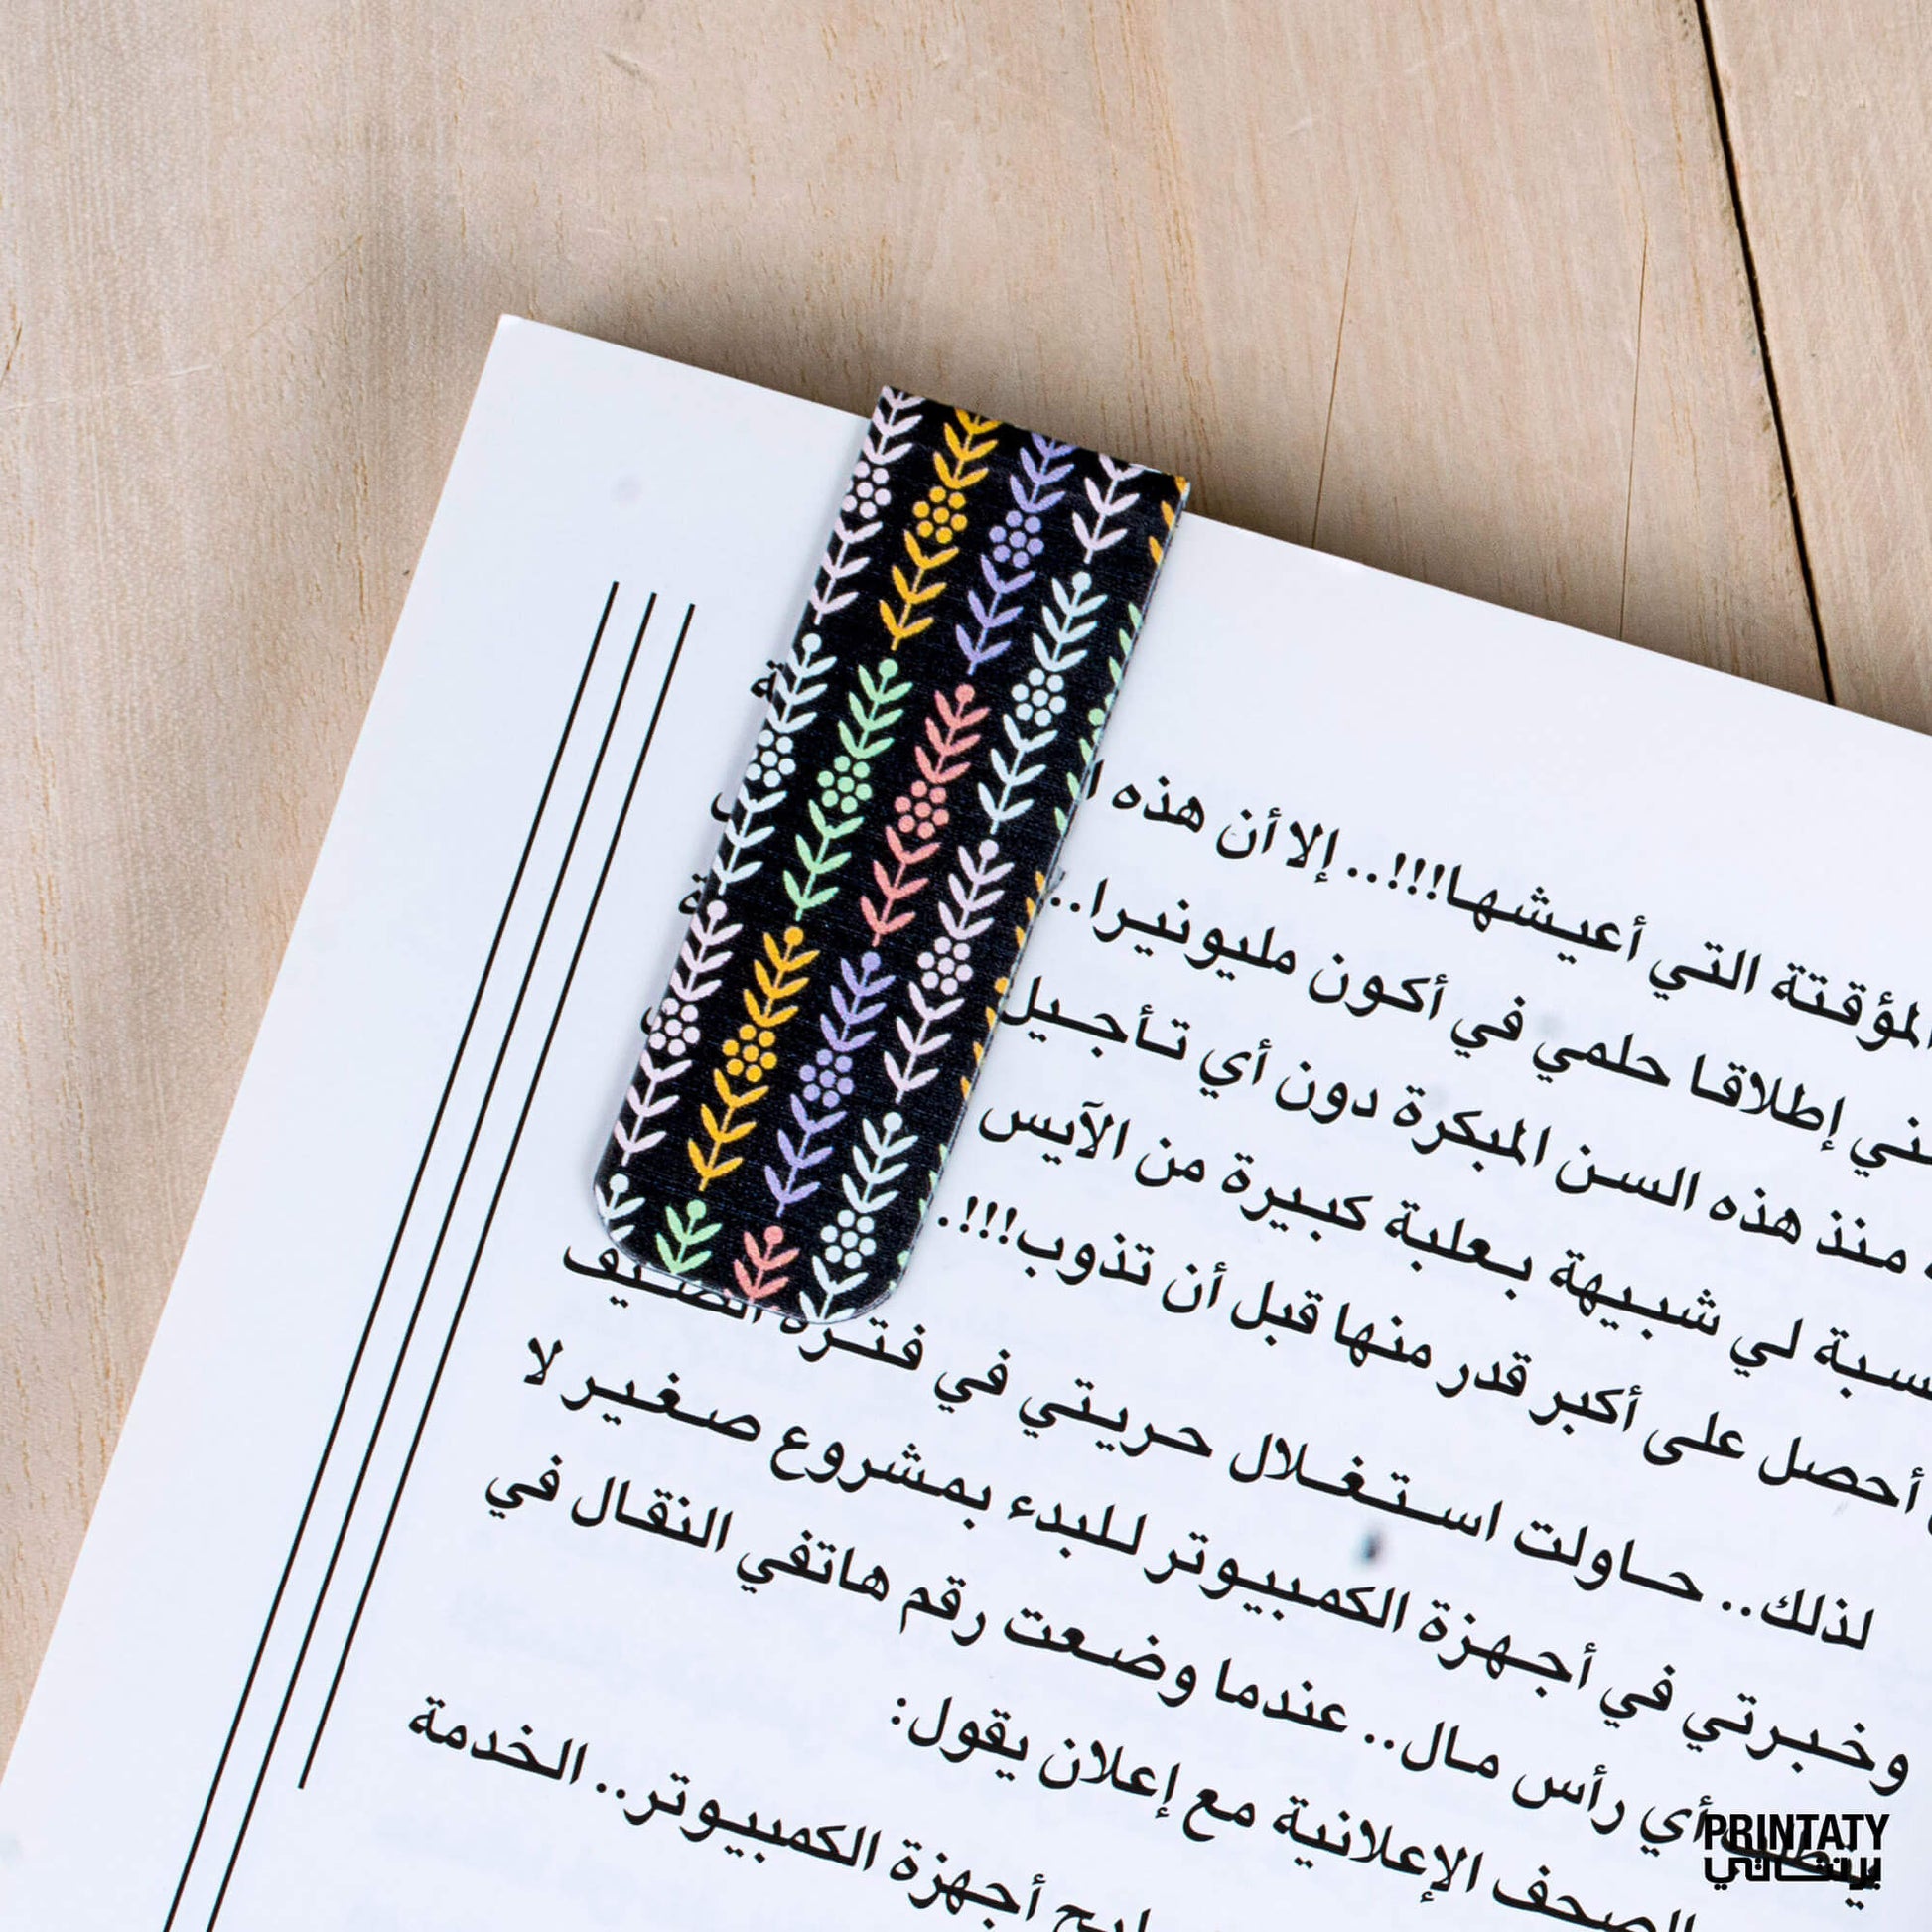 أعيشها!!!.. إلا أن هذه
المؤقتة التي
إطلاقا حلمي في أكون مليونيرا..
منذ هذه السن المبكرة دون أي تأجيل
لي شبيهة بعلبة كبيرة من الآيس
أحصل على أكبر قدر منها قبل أن تذوب!!!.
لذلك.. حاولت استغلال حريتي في فترة الصيف
وخبرتي في أجهزة الكمبيوتر للبدء بمشروع صغير لا
أي رأس مال.. عندما وضعت رقم هاتفي النقال في
الصحف الإعلانية مع إعلان يقول:
أجهزة الكمبيوتر.. الخدمة
PRINTATY
برنتاتي